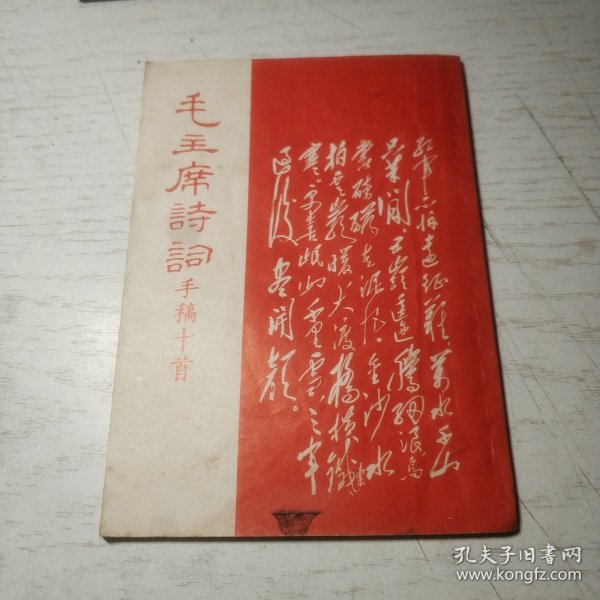 毛主席詩詞
手稿十首
红军不怕遠征難,萬水千山
只等閒。五嶺逶迤騰細浪,烏
蒙磅礴走泥丸。金沙水
拍雲崖暖,大渡橋橫鐵索
寒。更喜岷山千里雪,三军
过後尽開顏。
孔夫子旧书网
www.kongfz.com